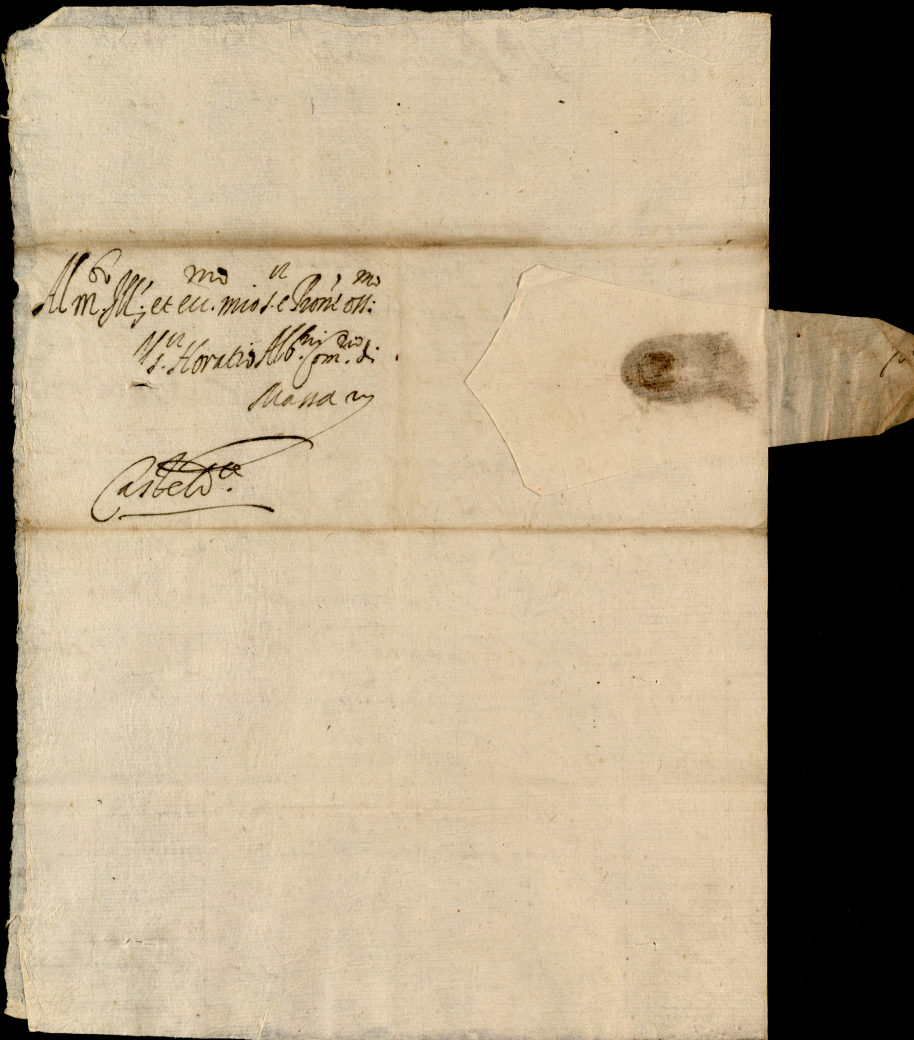 Al m.to Ill.e et ecc.mo mio s.r e Pron.e oss.mo
Il s.r Horatio Alb.ni Com.rio di
Massa
Casteld.te